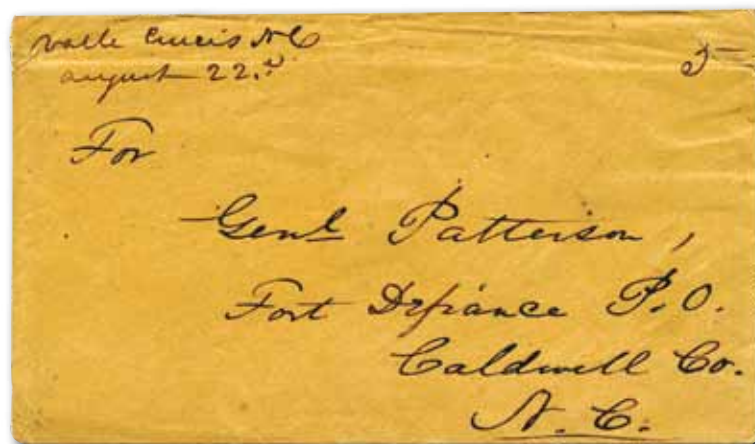 Valle Crucis N C
august 22.d
5
For
Genl Patterson,
Fort Defiance P.O.
Caldwell Co.
N. C.